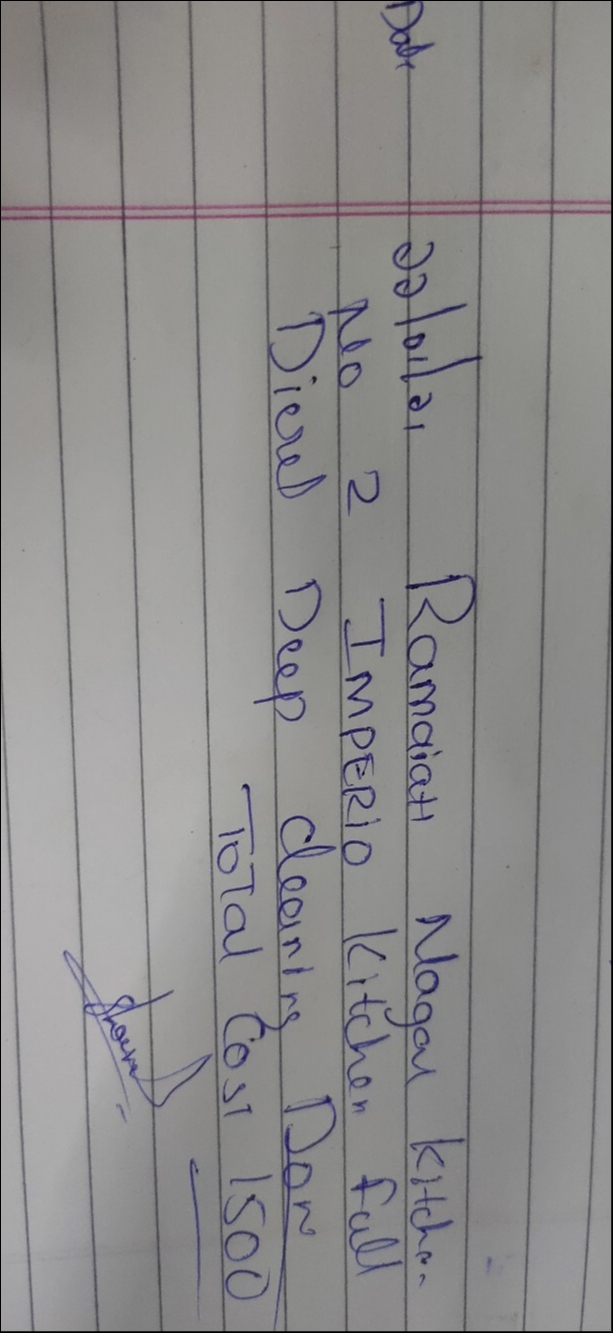 Date
22/01/21 Ramaiah Nagar Kitchen
No 2 IMPERIO Kitchen full
Diesel Deep cleaning Don
Total Cost 1500